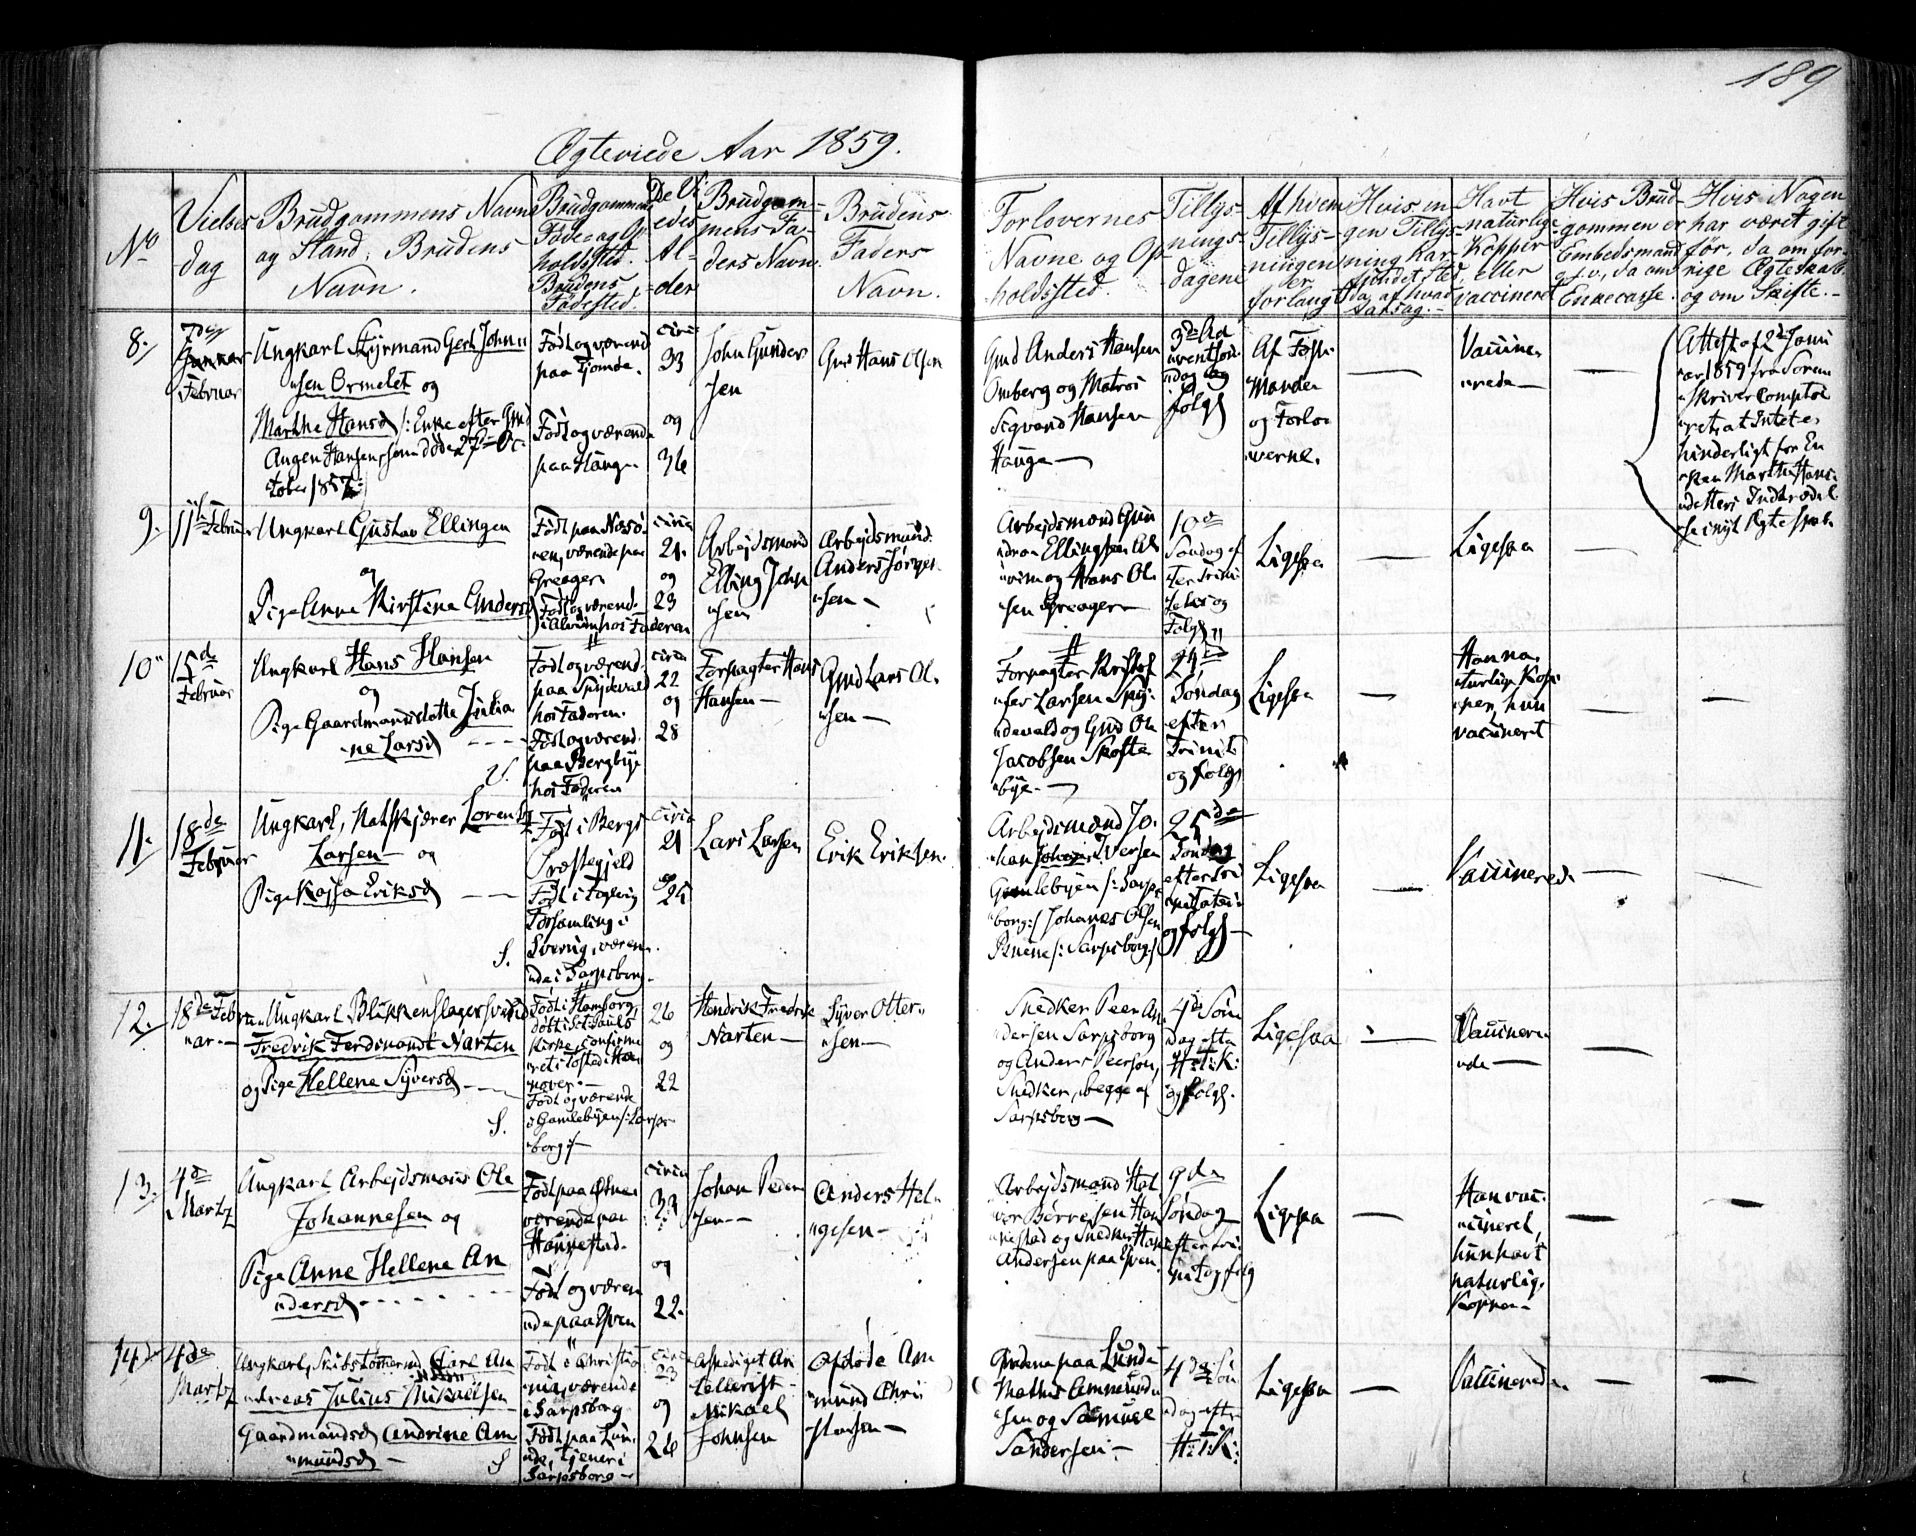 189
Ægteviede Aar 1859.
No
Vielses
dag
Brudgommens Navn
og Stand, Brudens
Navn.
Brudgommens
Føde og Op
holdssted.
Brudens
Fødested.
De Vi
edes
Al-
der
Brudgom-
mens Fa-
ders Navn
Brudens
Faders
Navn.
Forlovernes
Navne og Op
holdssted
Tillys-
nings-
dagene
Af hvem
Tillys-
ningen
er
forlangt
Hvis in-
gen Tillys-
ning har
fundet sted,
da af hvad
Aarsag.-
Havt
naturlige
Kopper
eller
vaccineret
Hvis Brud-
gommen er
Embedsmand
da om
Enkecasse.
Hvis Nogen
har været gift
før, da om for-
rige Ægteskab
og om Skifte.-
8.
7de
Februar
Ungkarl Styrmand Gert Johnn
sen Ormelet og
Marthe Hansd /: Enke efter Gmd
Hansen som døde 27de Oc-
tober 1857:/
Født og værend
paa Tjømøe.
Født og værende
paa Haug-
circa
33
og
36
John Gunder
sen
Gmd Hans Olsen
Gmd Anders Hansen
Omberg og Matros
Sigvard Hansen
Hauge
3de Ad
ventsøn
dag og
følg
Af Forl
Manden
og Forlo
verne.
Vaccine
rede
Attest af 2den Janu
ar 1859 fra Soren
skriver Comptoi
ret, at Intet er
hinderligt for En
ken Marthe Hans
datters Indtrædel
se i nyt Ægteskab.
9.
11te Februar
Ungkarl Gustav Ellingen
og
Pige Anne Kirstine Andersd
Født paa Næsø
en, værende paa
Greager
Født og værend.
i Alvim hos Faderen
circa
21.
og
23
Arbejdsmand
Elling John
sen
Arbejdsmand
Anders Jørgen
sen
Arbejdsmand Gun
der Ellingsen Al
vim og Hans Ol
sen Greager
10de
Søndag ef
ter Trini
tatis og
Følg
Ligesaa
Ligesaa
10
15de
Februar
Ungkarl Hans Hansen
og
Pige Gaardmandsdatte Julia
ne Larsd
Født og værend.
paa Spydevald
hos Faderen.
Født og værend.
paa Bergbye
hos Faderen
circa
22
og
28
Forpagter Hans
Hansen
Gmd Lars Ol
sen
Forpagter Kristof
fer Larsen Spy
devald og Gmd Ole
Jacobsen Skofte
bye.
24de
Søndag
efter
Trinit
og følg
Ligesaa
Han na
turlige Kop
per, hun
vaccineret
11.
18de
Februar
Ungkarl, Matskjærer Lorents
Larsen og
Pige Kajsa Eriksd
S.
Født i Bergs
Præstegjeld
Født i Fogelvig
Forsamling i
Sverig, væren
de i Sarpsborg
circa
21
og
25
Lars Larsen
Erik Eriksen.
Arbejdsmand Jo
han Iversen
Gamlebyen /: Sarps
borg:/ Johanes Olsen
/: Sarpsborg:/
25de
Søndag
efter Tri
nitatis
og følg
Ligesaa
Vaccinerede
12.
18de Febru
ar.
Ungkarl Blikkenslagersvend
Fredrik Ferdinandt Narten
og Pige Hellene Syversd
S.
Født i Hamborg,
døbt i St. Pauls
Kirke, confirme
ret i Tostedt Han
nover.
Født og værende
i Gamlebyen /: Sarps
borg:/
26
og
22
Hendrik Fredrik
Narten
Syver Otter
sen
Snedker Peer An
dersen Sarpsborg
og Anders Peersen,
Snedker, begge af
Sarpsborg
4de Søn
dag efter
H: 3: K:
og følg.
Ligesaa
Vaccinere
de
13.
4de
Martz
Ungkarl Arbejdsmand Ole
Johannesen og
Pige Anne Hellene An
dersd
Født paa
værende paa
Hannestad.
Født og væren
de paa Spven
circa
33
og
22.
Johan Peder
sen
Anders Hel
gesen
Arbejdsmand Hal
vor Børresen Han
nestad og Snedker Hans
Andersen paa
9de
Søndag
efter Tri
nit og følg
Ligesaa
Han vac
cineret,
hun havt
naturlig
Kopper
14de
4de
Martz
Ungkarl, Skibstømermd Carl An
dreas Julius Mikaelsen
Gaardmandsd Andrine Am
mundsd
S
Født i Christia
nia, værende
i Sarpsborg
Født paa Lun
de, tjener i
Sarpsborg
circa
23
og
26
Afskediget Ar
tellerist
Mikael
Johnsen
Afdøde Am
mund Chri
stensen
Brødrene paa Lunde
Mathis Ammunde
sen og Samuel
Sandersen
4de Søn
dag efter
H: 3: K:
Ligesaa
Vaccinerede